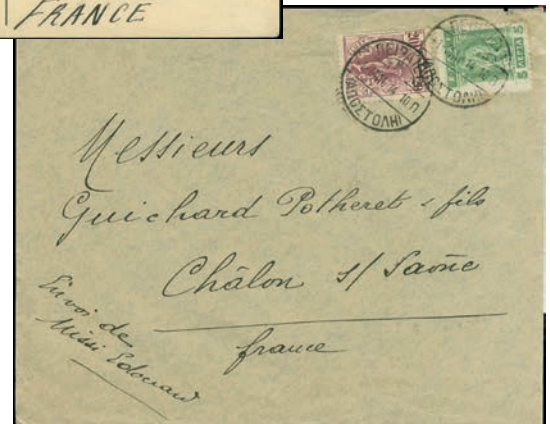 FRANCE
ΠΕΙΡΑΙΕΥΣ
ΑΠΟΣΤΟΛΗ
5 ΛΕΠΤΑ 5
Messieurs
Guichard Potheret & fils
Châlon s/ Saône
france
Envoi de
Missi Edouard